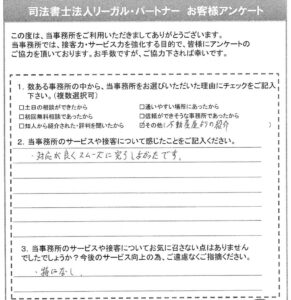 司法書士法人リーガル・パートナー お客様アンケート
この度は、当事務所をご利用いただきましてありがとうございます。
当事務所では、接客力・サービス力を強化する目的で、皆様にアンケートの
ご協力を頂いております。お手数ですが、ご協力下されば幸いです。
1. 数ある事務所の中から、当事務所をお選びいただいた理由にチェックをご記入
下さい。(複数選択可)
□土日の相談ができたから □通いやすい場所にあったから
□初回無料相談であったから □信頼ができそうな事務所であったから
□知人から紹介された・評判を聞いたから ☑その他(不動産屋よりの紹介 )
2. 当事務所のサービスや接客について感じたことをご記入ください。
・対応が良くスムーズに完了しよかったです。
3. 当事務所のサービスや接客についてお気に召さない点はありません
でしたでしょうか？今後のサービス向上の為、ご遠慮なくご指摘ください。
・特になし。